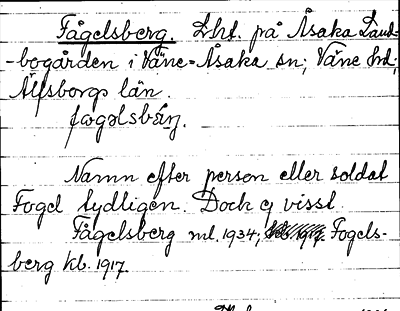 Fågelsberg. Lht. på Åsaka Land-
-bogården i Väne-Åsaka sn; Väne hd;
Älfsborgs län.
fωgəlsbérj.
Namn efter person eller soldat
Fogel tydligen. Dock ej visst.
Fågelsberg ml. 1934; Fogels-
berg kb. 1917.